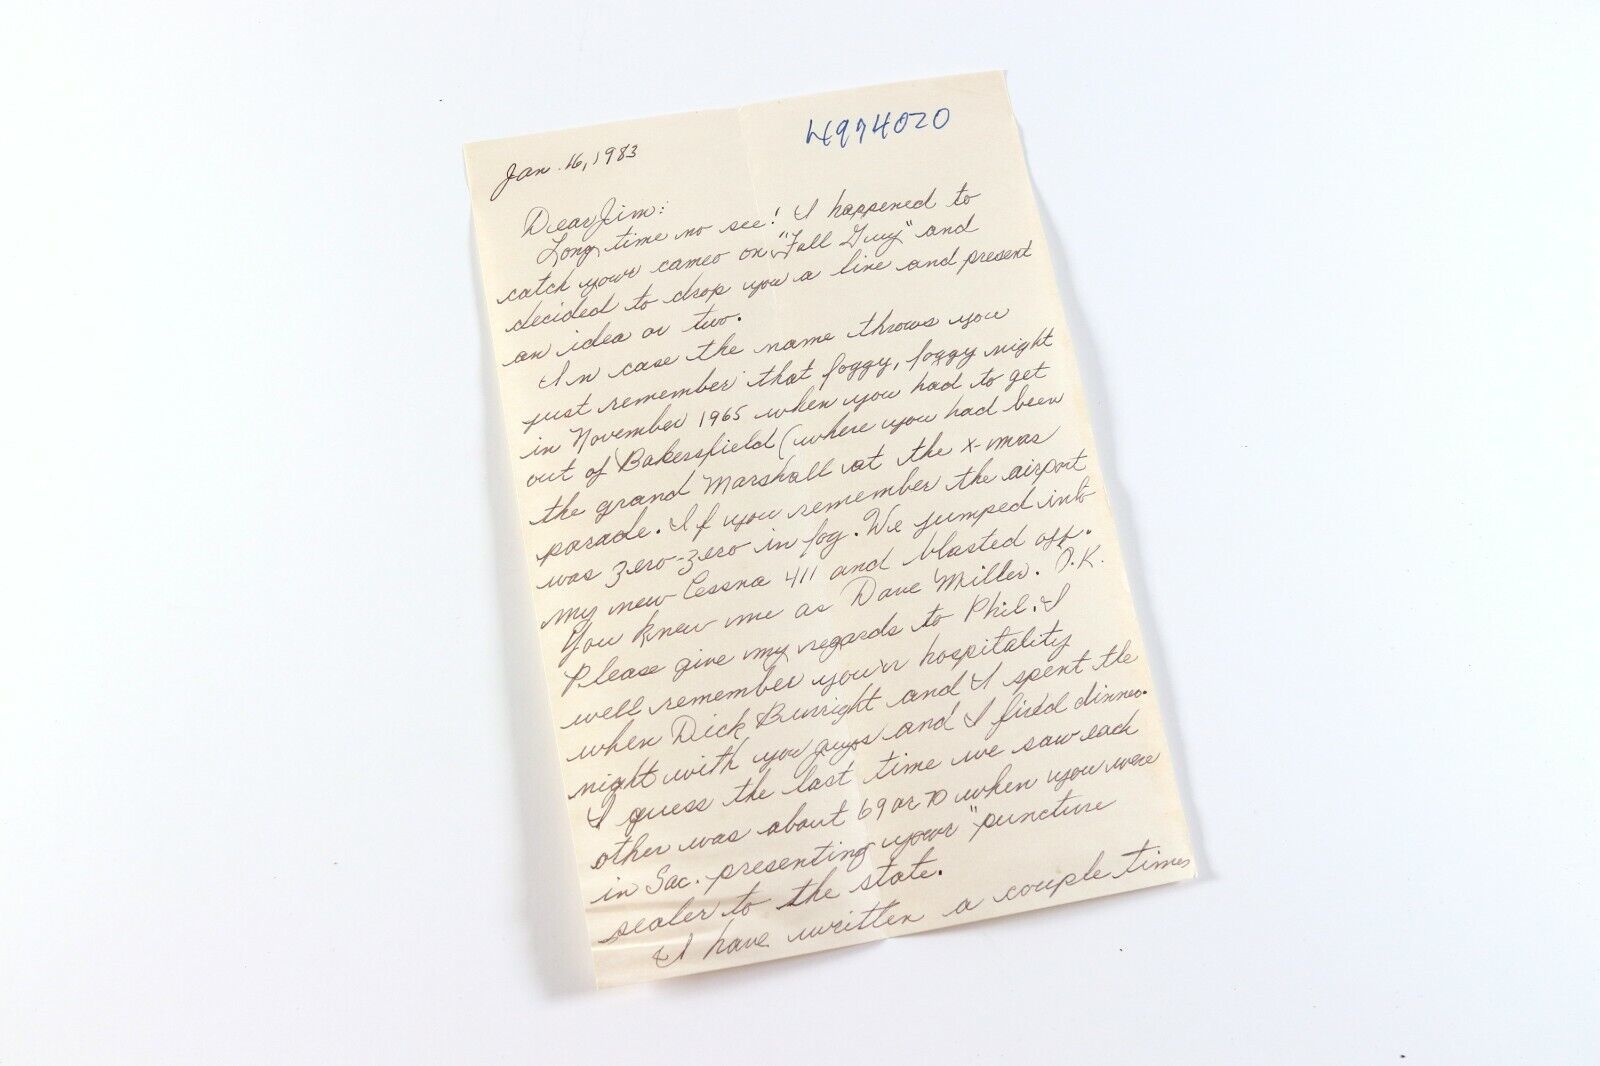 Jan. 16, 1983
4974020
Dear Jim:
Long time no see! I happened to
catch your cameo on "Fall Guy" and
decided to drop you a line and present
an idea or two.
In case the name throws you
just remember that foggy, foggy night
in November 1965 when you had to get
out of Bakersfield (where you had been
the grand Marshall at the x-mas
parade. If you remember the airport
was zero-zero in fog. We jumped into
my new Cessna 411 and blasted off.
You knew me as Dave Miller. O.K.
Please give my regards to Phil. I
well remember you'r hospitality
when Dick Burright and I spent the
night with you guys and I fixed dinner.
I guess the last time we saw each
other was about 69 or 70 when you were
in Sac. presenting your "puncture
sealer to the state.
I have written a couple times